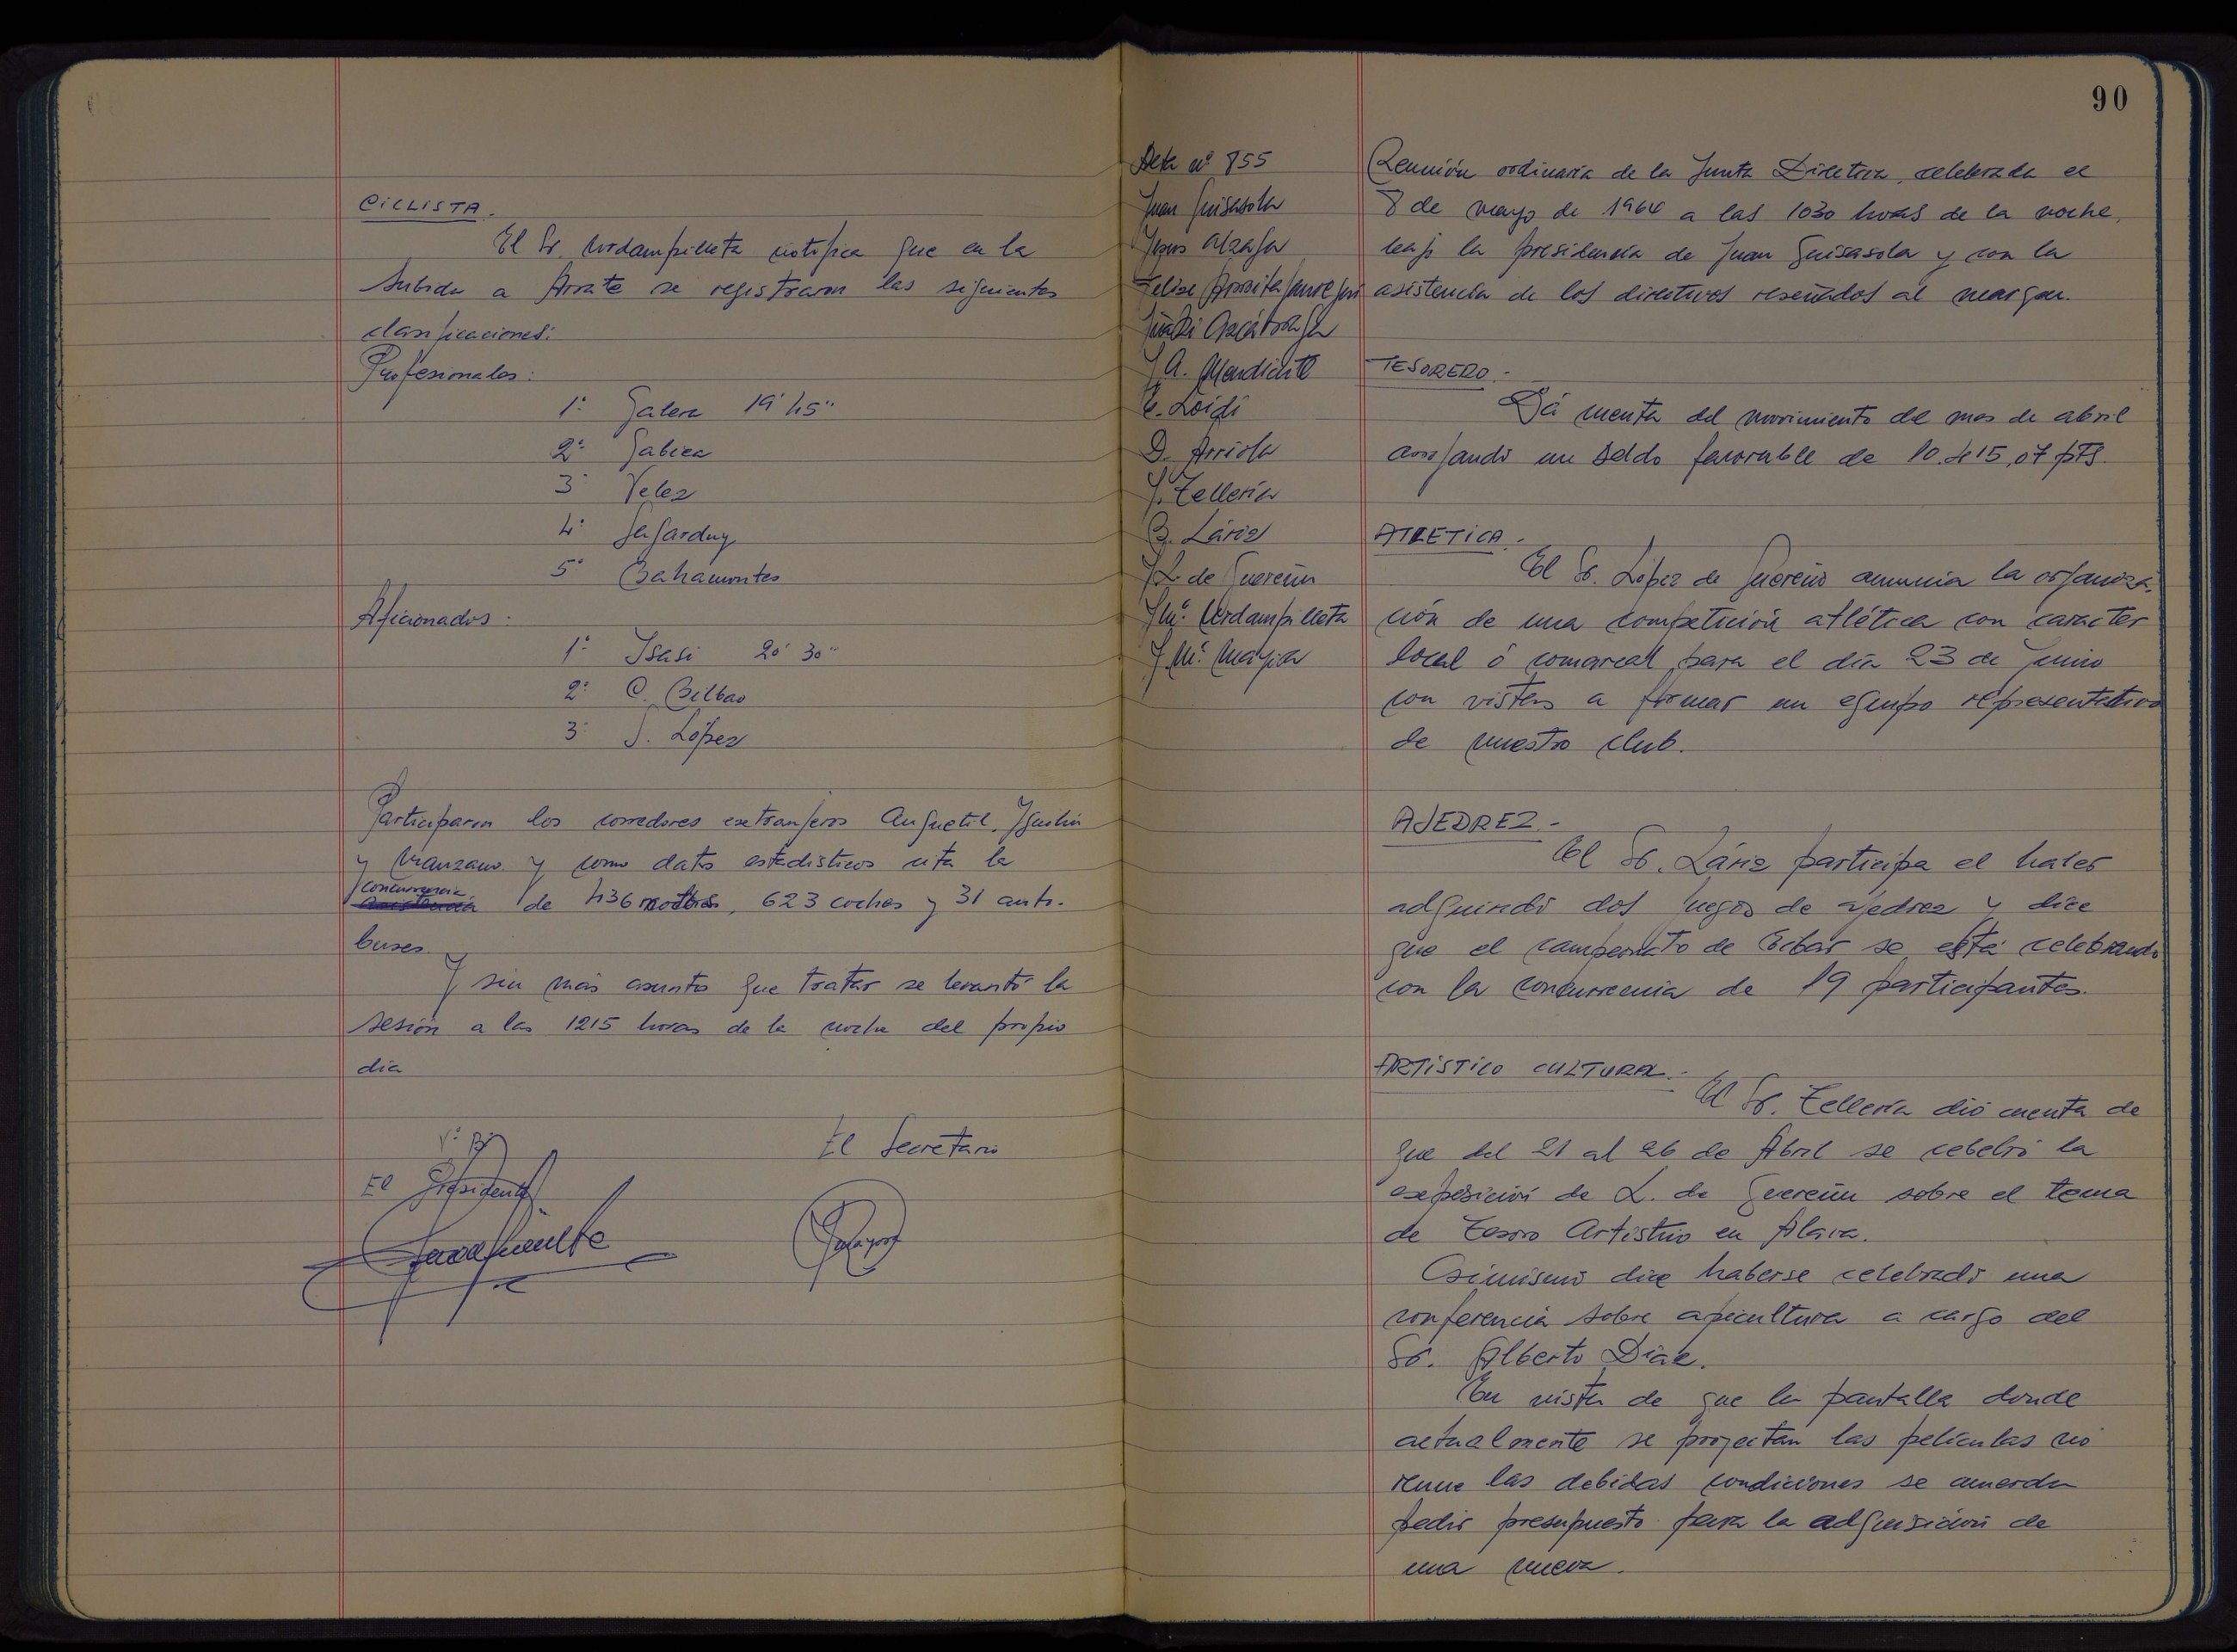 CICLISTA.
El Sr. Urdampilleta notifica que en la
subida a Arrate se registraron las siguientes
clasificaciones:
Profesionales:
1º Galera 19' 45''
2º Gabica
3º Velez
4º
5º Bahamontes
Aficionados:
1º Isasi 20' 30''
2º C. Bilbao
3º S. López
Participaron los corredores extranjeros Anquetil,
y Manzano y como datos estadísticos cita la
concurrencia
de 436 motos, 623 coches y 31 auto-
buses.
Y sin más asuntos que tratar se levantó la
sesión a las 1215 horas de la noche del propio
día
Vº Bº
El Presidente
El Secretario
90
Acta nº 855
Juan Guisasola
Jesus Alzaga
Felix Arrieta
Iñaki Azcárraga
J.A. Mendicute
E. Loidi
D. Arriola
J. Tellería
B. Láriz
J.L. de Guereñu
J.Mª. Urdampilleta
J.Mª. Mayora
Reunión ordinaria de la Junta Directiva, celebrada el
8 de mayo de 1964 a las 1030 horas de la noche,
bajo la presidencia de Juan Guisasola y con la
asistencia de los directivos reseñados al margen.
TESORERO.-
Dá cuenta del movimiento de mes de abril
arrojando un saldo favorable de 10.415,07 pts.
ATLETICA.-
El Sr. López de Guereñu anuncia la organiza-
ción de una competición atlética con caracter
local ó comarcal para el día 23 de Junio
con vistas a formar un equipo representativo
de nuestro club.
AJEDREZ.-
El Sr. Láriz participa el haber
adquirido dos juegos de ajedrez y dice
que el campeonato de Eibar se está celebrando
con la concurrencia de 19 participantes.
ARTISTICO CULTURAL.-
El Sr. Tellería dió cuenta de
que del 21 al 26 de Abril se celebró la
exposición de L. de Guereñu sobre el tema
de Tesoro Artistico en Alava.
Asimismo dice haberse celebrado una
conferencia sobre apicultura a cargo del
Sr. Alberto Diaz.
En vista de que la pantalla donde
actualmente se proyectan las películas no
reune las debidas condiciones se acuerda
pedir presupuesto para la adquisición de
una nueva.